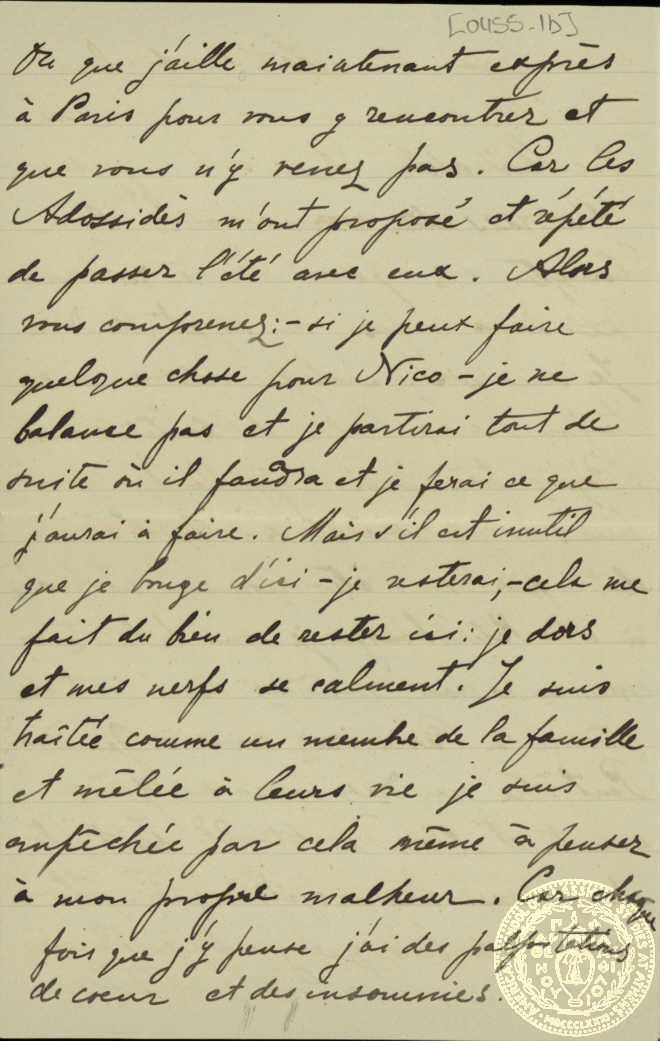 [OUSS-1b]
Ou que j'aille maintenant exprès
à Paris pour vous y rencontrer et
que vous n'y venez pas. Car les
Adossidès m'ont proposé et répété
de passer l'été avec eux. Alors
vous comprenez:- si je peux faire
quelque chose pour Nico - je ne
balance pas et je partirai tout de
suite où il faudra et je ferai ce que
j'aurai à faire. Mais s'il est inutil
que je bouge d'ici - je resterai, - cela me
fait du bien de rester ici: je dors
et mes nerfs se calment. Je suis
traîtée comme un membre de la famille
et mêlée à leurs vie je suis
empêchée par cela même à penser
à mon propre malheur. Car chaque
fois que j'y pense j'ai des palpitations
de coeur et des insomnies.